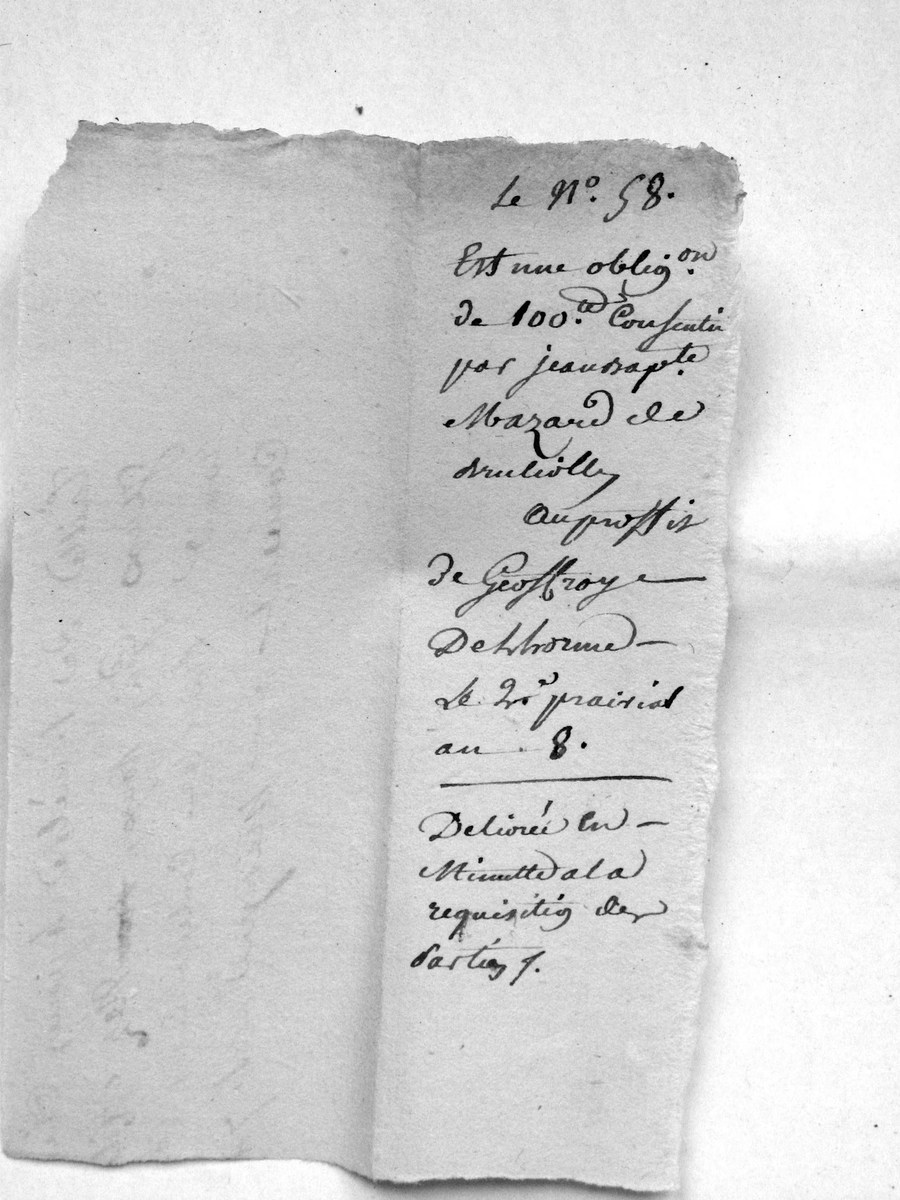 Le N.º 58.
Est une oblig.on
de 100.tt Consentie
par jeanbap.te
Mazard de
au proffit
de Geoffroye
Delhorme
Le prairial
an 8.
Delivrée en
Minutte a la
requisition des
Parties